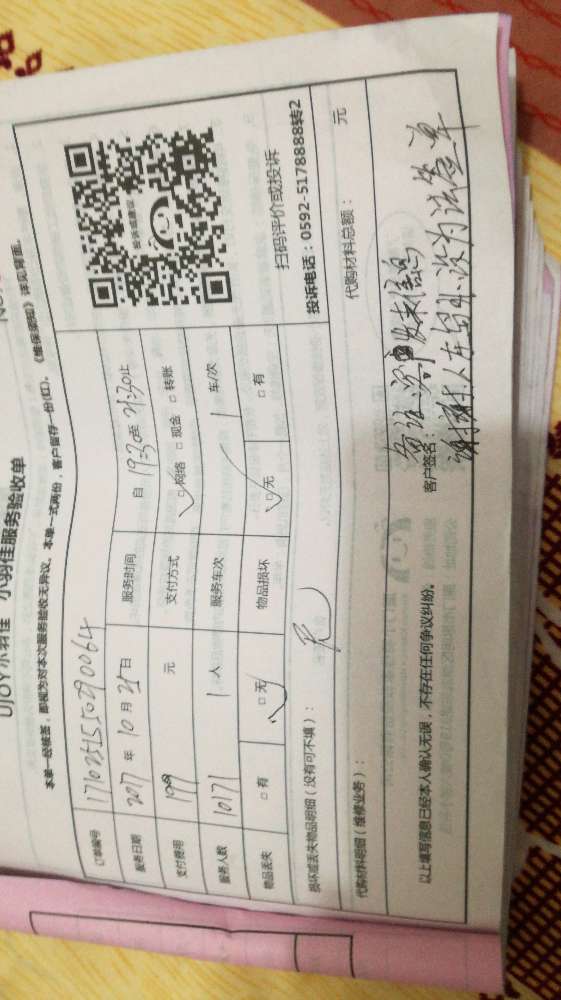 UJOY小羽佳 小羽佳服务验收单
本单一经核签，即视为对本次服务验收无异议。本单一式两份，客户留存一份(红)。《维保须知》详见背面。
订单编号
服务日期 2017 年 10 月 25 日 服务时间 自 19:30 至 21:30 止
支付费用 元 支付方式 □网络 □现金 □转账
服务人数 10171 1 人 服务车次 1 车/次
物品丢失 □有 □无 物品损坏 □无 □有
投诉或建议
扫码评价或投诉
投诉电话：0592-5178888转2
损坏或丢失物品明细（没有可不填）： 无
代购材料明细（维修业务）： 代购材料总额： 元
以上填写信息已经本人确认无误，不存在任何争议纠纷。 客户签名：
备注 客户发来信息
谢谢 人在岛外 设为试签单